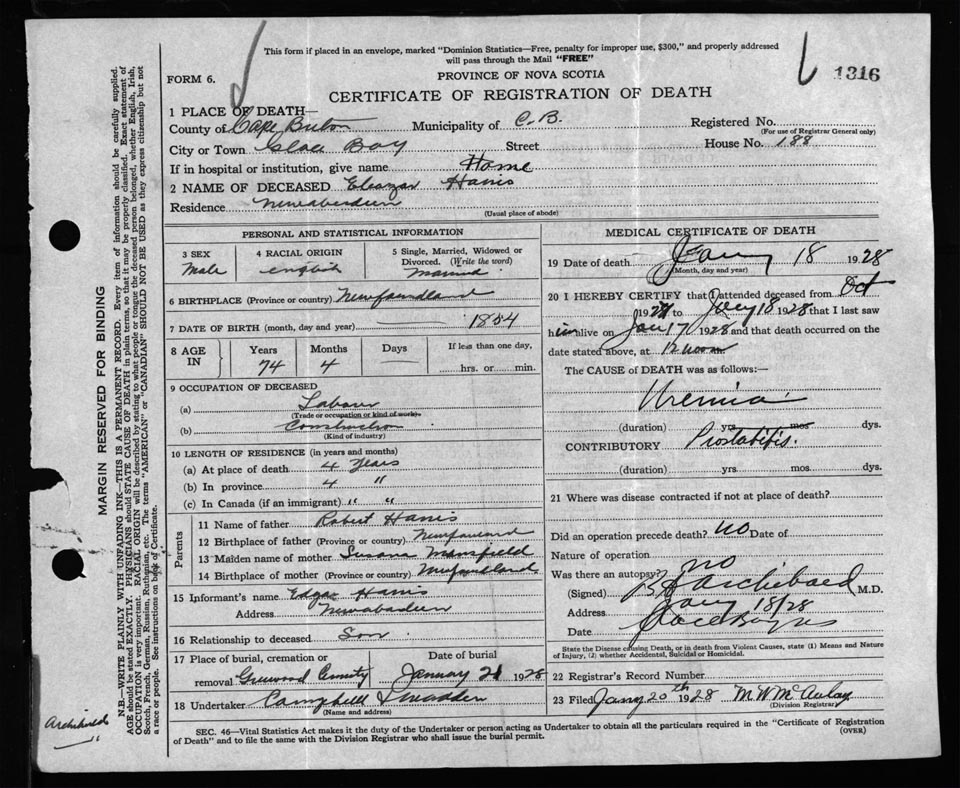 This form if placed in an envelope, marked "Dominion Statistics—Free, penalty for improper use, $300," and properly addressed
will pass through the Mail "FREE"
FORM 6.
PROVINCE OF NOVA SCOTIA
1316
CERTIFICATE OF REGISTRATION OF DEATH
1 PLACE OF DEATH—
County of Cape Breton Municipality of C.B. Registered No.
(For use of Registrar General only)
City or Town Glace Bay Street House No. 188
If in hospital or institution, give name Home
2 NAME OF DECEASED Eleazar Harris
Residence Newaberdeen
(Usual place of abode)
PERSONAL AND STATISTICAL INFORMATION
3 SEX 4 RACIAL ORIGIN 5 Single, Married, Widowed or
Divorced. (Write the word)
Male english married
6 BIRTHPLACE (Province or country) Newfoundland
7 DATE OF BIRTH (month, day and year) 1854
8 AGE IN Years Months Days If less than one day,
74 4 hrs. or min.
9 OCCUPATION OF DECEASED
(a) Labour
(Trade or occupation or kind of work)
(b) Construction
(Kind of industry)
10 LENGTH OF RESIDENCE (in years and months)
(a) At place of death 4 years
(b) In province 4 "
(c) In Canada (if an immigrant) " "
Parents
11 Name of father Robert Harris
12 Birthplace of father (Province or country)
13 Maiden name of mother Susana Mansfield
14 Birthplace of mother (Province or country) Newfoundland
15 Informant's name Edgar Harris
Address Newaberdeen
16 Relationship to deceased Son
17 Place of burial, cremation or Date of burial
removal January 21 1928
18 Undertaker Campbell
(Name and address)
MEDICAL CERTIFICATE OF DEATH
19 Date of death Jany 18 1928
(Month, day and year)
20 I HEREBY CERTIFY that I attended deceased from Oct
1927 to Jany 18 1928 that I last saw
him alive on Jan 17 1928 that death occurred on the
date stated above, at 12 noon
The CAUSE of DEATH was as follows:—
Uremia
(duration) yrs. mos. dys.
CONTRIBUTORY Prostatitis.
(duration) yrs. mos. dys.
21 Where was disease contracted if not at place of death?
Did an operation precede death? NO Date of
Nature of operation
Was there an autopsy? no
(Signed) Archibald M.D.
Address Jany 18/28
Date Glace Bay NS
State the Disease causing Death, or in death from Violent Causes, state (1) Means and Nature
of Injury, (2) whether Accidental, Suicidal or Homicidal.
22 Registrar's Record Number
23 Filed Jany 20th 1928 M W McAulay
(Division Registrar)
SEC. 46—Vital Statistics Act makes it the duty of the Undertaker or person acting as Undertaker to obtain all the particulars required in the "Certificate of Registration
of Death" and to file the same with the Division Registrar who shall issue the burial permit.
(OVER)
MARGIN RESERVED FOR BINDING
N.B.—WRITE PLAINLY WITH UNFADING INK—THIS IS A PERMANENT RECORD. Every item of information should be carefully supplied.
AGE should be stated EXACTLY. PHYSICIANS should STATE CAUSE OF DEATH in plain terms, so that it may be properly classified. Exact statement of
OCCUPATION is very important. RACIAL ORIGIN will be described by stating to what people or tongue the deceased person belonged, whether English, Irish,
Scotch, French, German, Russian, Ruthenian, etc. The terms "AMERICAN" or "CANADIAN" SHOULD NOT BE USED as they express citizenship but not
a race or people. See instructions on back of Certificate.
Archibald
"